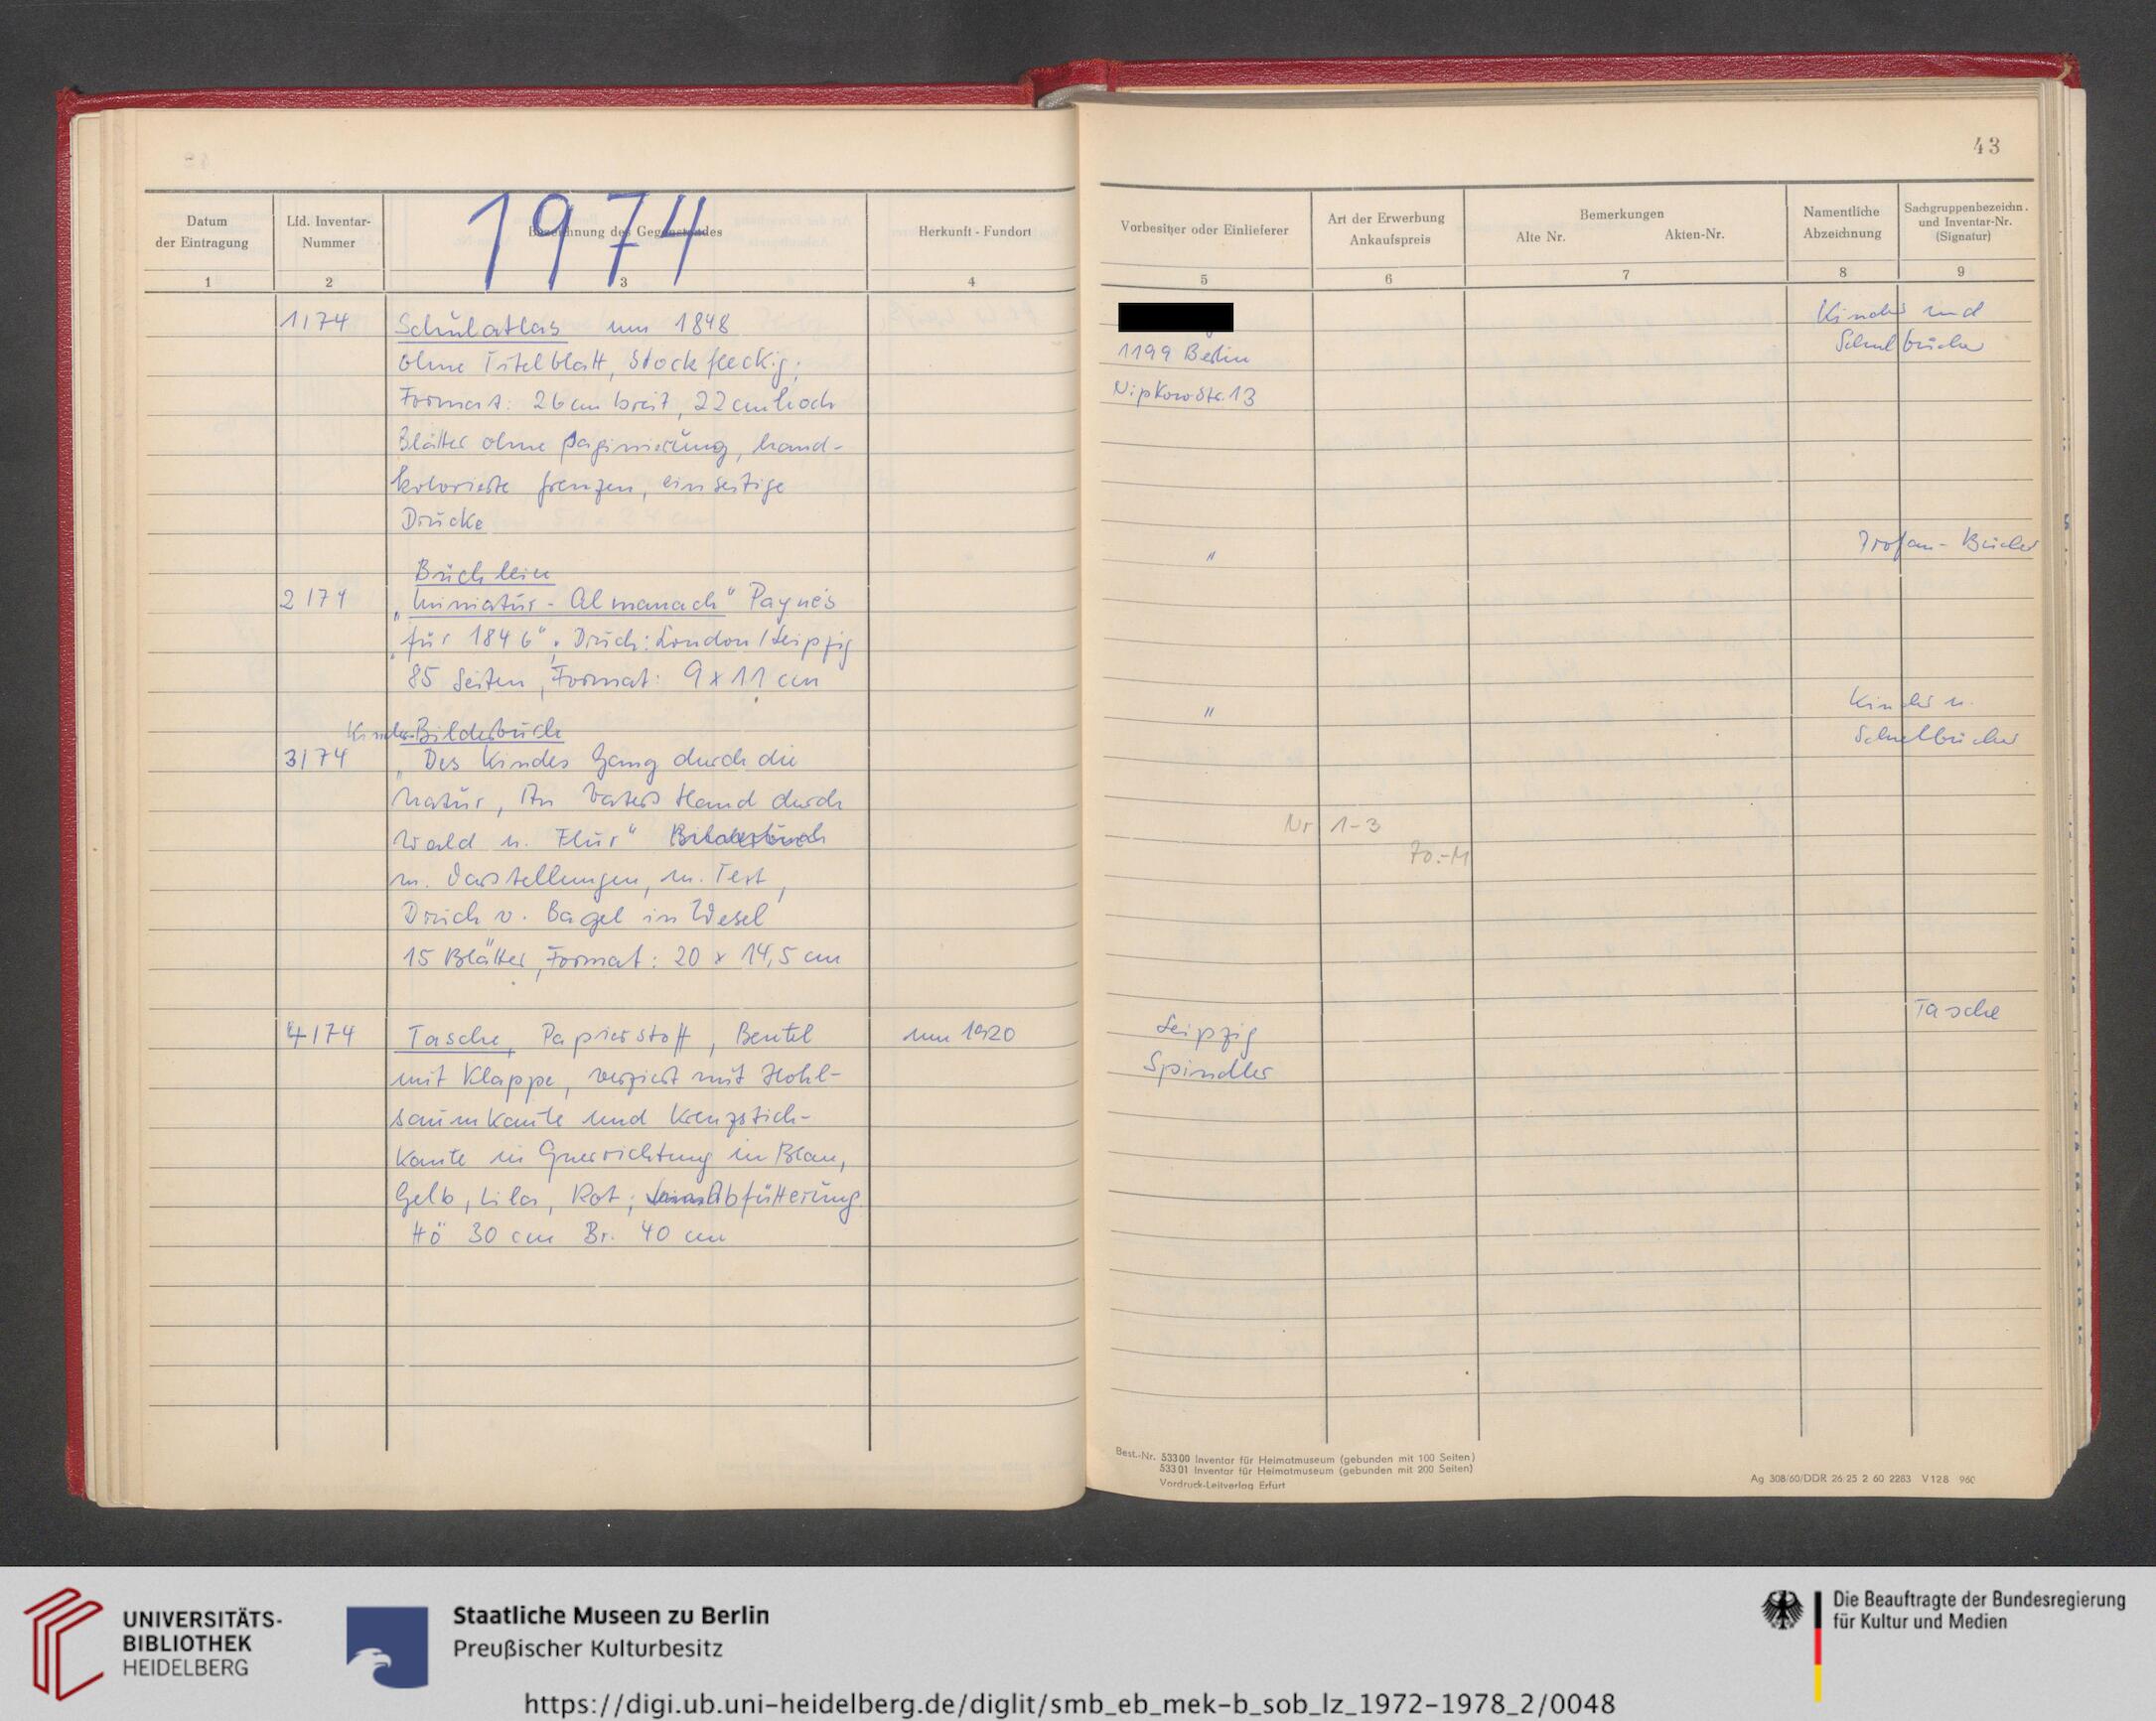 43
1974
Datum
der Eintragung
Lfd. Inventar-
Nummer
Bezeichnung des Gegenstandes
Herkunft - Fundort
Vorbesitzer oder Einlieferer
Art der Erwerbung
Ankaufspreis
Bemerkungen
Alte Nr. Akten-Nr.
Namentliche
Abzeichnung
Sachgruppenbezeichn.
und Inventar-Nr.
(Signatur)
1 2 3 4 5 6 7 8 9
1/74 Schulatlas um 1848
ohne Titelblatt, Stockfleckig;
Format: 26 cm breit, 22 cm hoch
Blätter ohne Paginierung, hand-
kolorierte Grenzen, einseitige
Drucke
1199 Berlin
Nipkowstr. 13
Kinder und
Schulbücher
Büchlein
2/74 „Miniatur-Almanach" Payne's
„für 1846"; Druck: London/Leipzig
85 Seiten, Format: 9 x 11 cm
"
Profan-Bücher
Kinder-Bilderbuch
3/74 „Des Kindes Gang durch die
Natur, An Vaters Hand durch
Wald u. Flur" Bilderbuch
m. Darstellungen, m. Text,
Druck v. Bagel in Wesel
15 Blätter, Format: 20 x 14,5 cm
"
Kinder u.
Schulbücher
Nr 1-3
70.-M
4/74 Tasche, Papierstoff, Beutel
mit Klappe, verziert mit Hohl-
saumkante und Kreuzstich-
kante in Querrichtung in Blau,
Gelb, Lila, Rot; Abfütterung.
Hö 30 cm Br. 40 cm
um 1920
Leipzig
Spindler
Tasche
Best.-Nr. 53300 Inventar für Heimatmuseum (gebunden mit 100 Seiten)
53301 Inventar für Heimatmuseum (gebunden mit 200 Seiten)
Vordruck-Leitverlag Erfurt
Ag 308/60/DDR 26 25 2 60 2283 V128 960
UNIVERSITÄTS-
BIBLIOTHEK
HEIDELBERG
Staatliche Museen zu Berlin
Preußischer Kulturbesitz
Die Beauftragte der Bundesregierung
für Kultur und Medien
https://digi.ub.uni-heidelberg.de/diglit/smb_eb_mek-b_sob_lz_1972-1978_2/0048